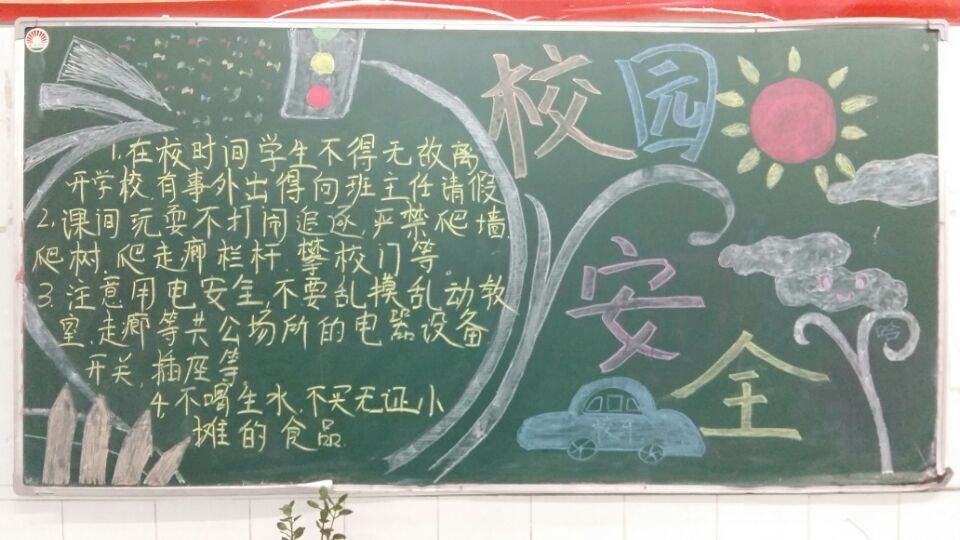 校园
安
全
1.在校时间学生不得无故离
开学校.有事外出得向班主任请假
2.课间玩耍不打闹追逐.严禁爬墙.
爬树.爬走廊栏杆.攀校门等
3.注意用电安全,不要乱摸乱动教
室.走廊等共公场所的电器设备
开关.插座等.
4.不喝生水.不买无证小
摊的食品.
校车